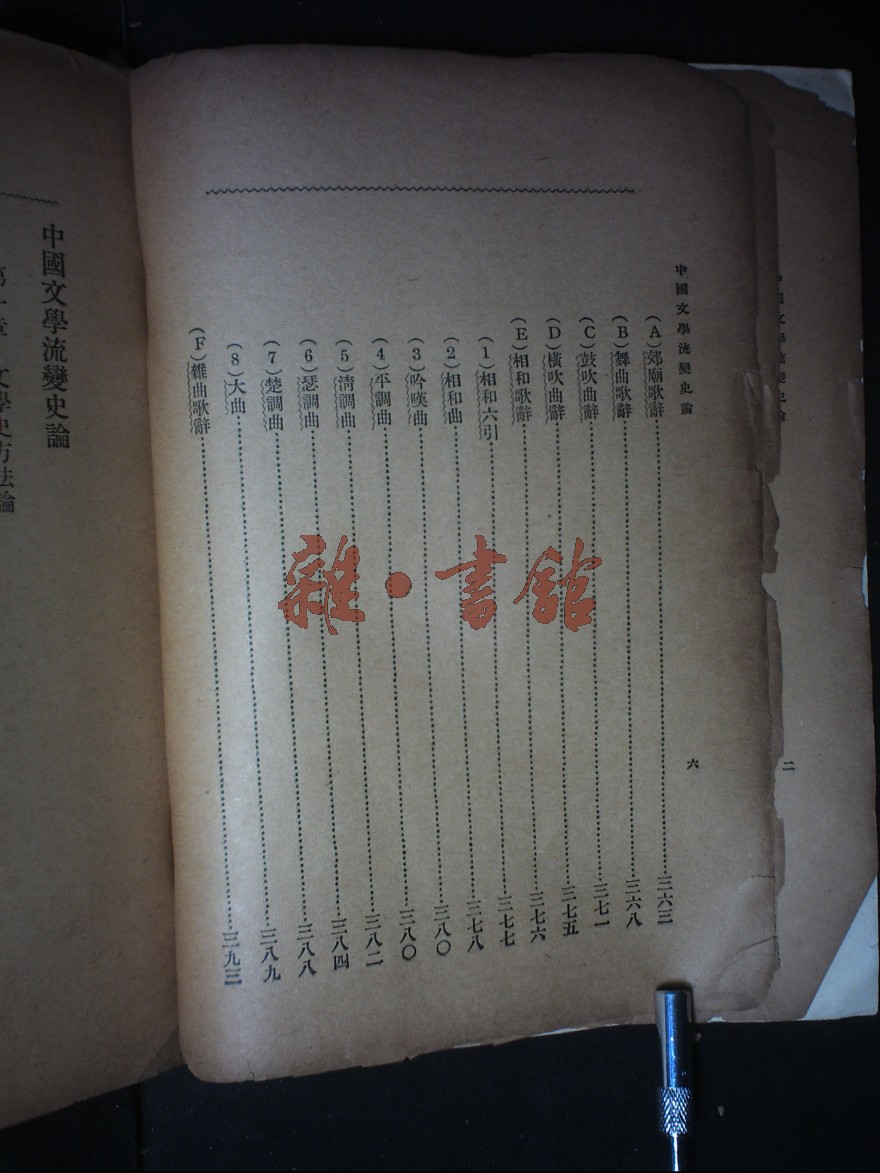 中國文學流變史論 二
中國文學流變史論 六
(A)郊廟歌辭……三六三
(B)舞曲歌辭……三六八
(C)鼓吹曲辭……三七一
(D)橫吹曲辭……三七五
(E)相和歌辭……三七六
(1)相和六引……三七七
(2)相和曲……三七八
(3)吟嘆曲……三八〇
(4)平調曲……三八〇
(5)清調曲……三八二
(6)瑟調曲……三八四
(7)楚調曲……三八八
(8)大曲……三八九
(F)雜曲歌辭……三九三
中國文學流變史論
第一章 文學史方法論
雜·書館